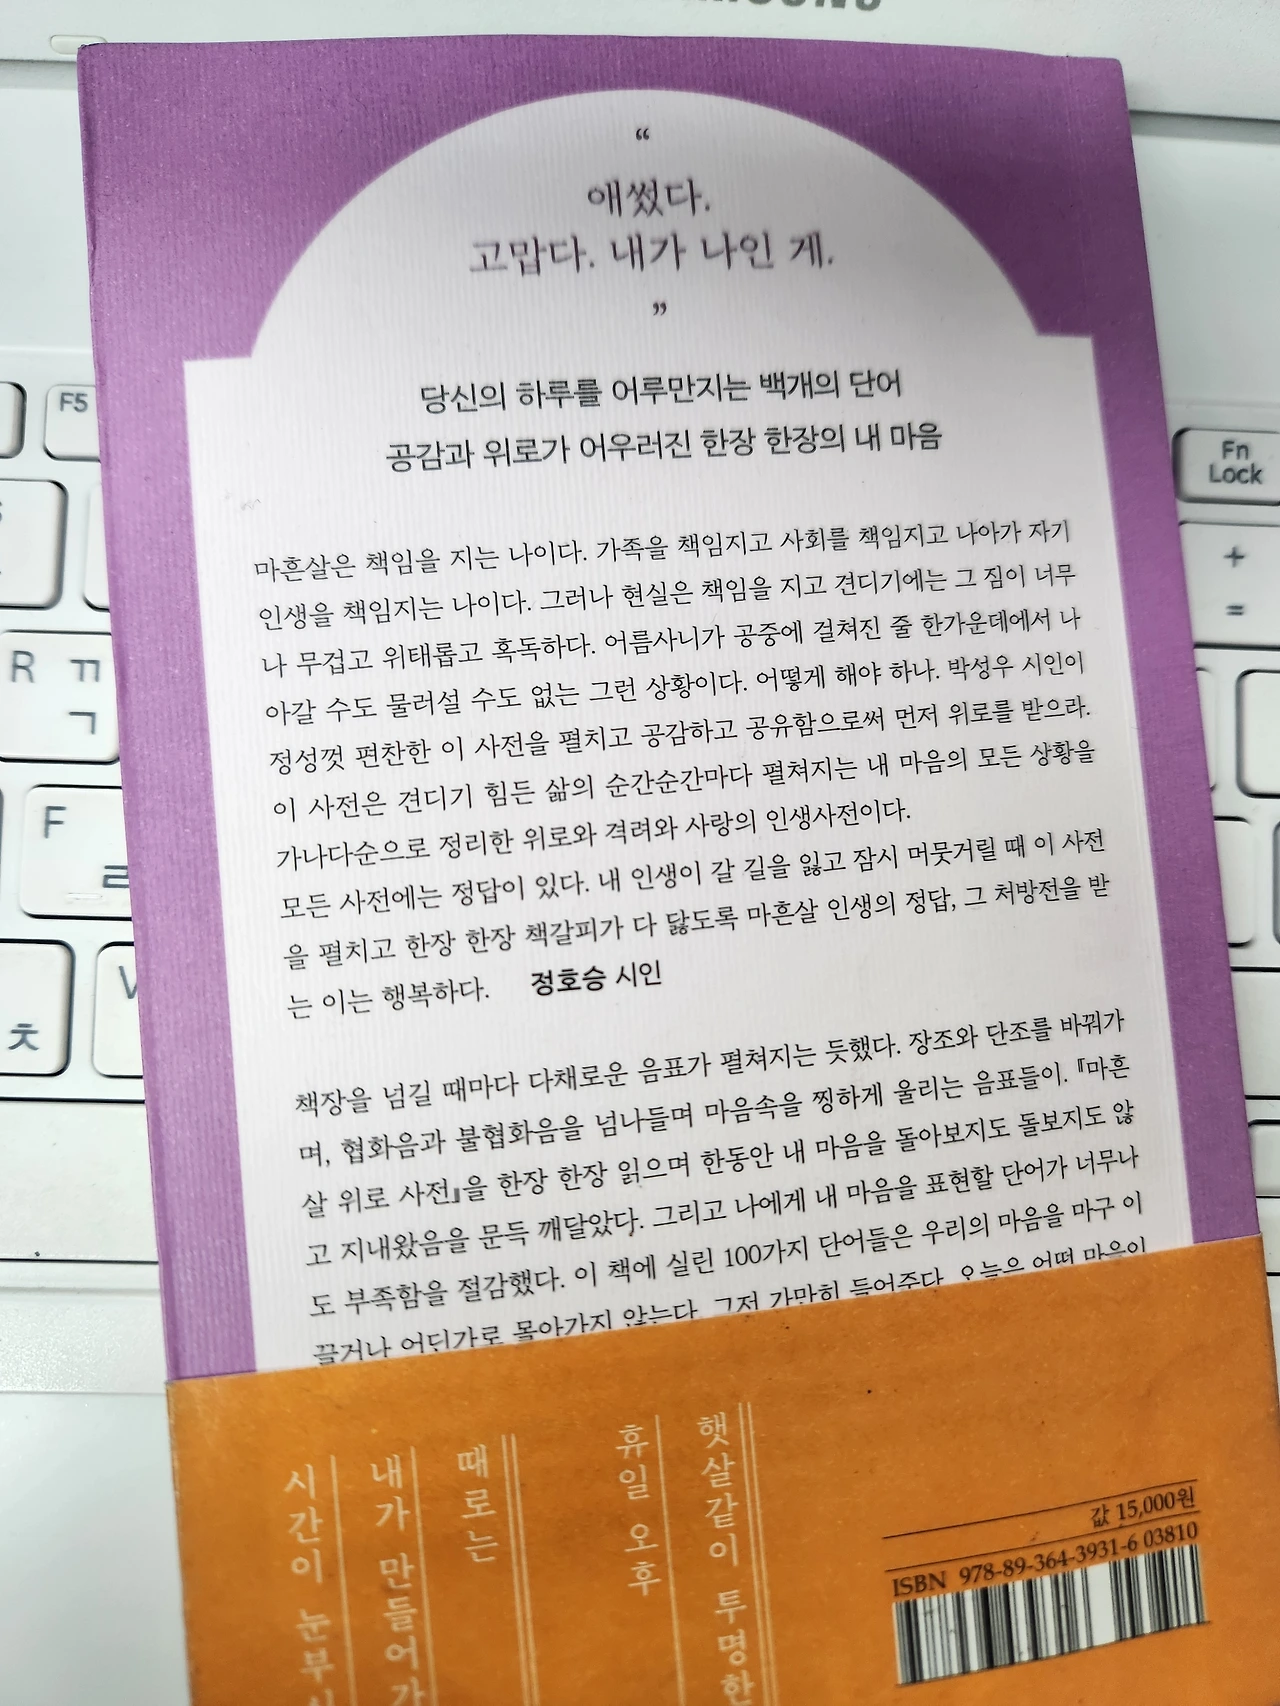 “
애썼다.
고맙다. 내가 나인 게.
”
당신의 하루를 어루만지는 백개의 단어
공감과 위로가 어우러진 한장 한장의 내 마음
마흔살은 책임을 지는 나이다. 가족을 책임지고 사회를 책임지고 나아가 자기
인생을 책임지는 나이다. 그러나 현실은 책임을 지고 견디기에는 그 짐이 너무
나 무겁고 위태롭고 혹독하다. 어름사니가 공중에 걸쳐진 줄 한가운데에서 나
아갈 수도 물러설 수도 없는 그런 상황이다. 어떻게 해야 하나. 박성우 시인이
정성껏 편찬한 이 사전을 펼치고 공감하고 공유함으로써 먼저 위로를 받으라.
이 사전은 견디기 힘든 삶의 순간순간마다 펼쳐지는 내 마음의 모든 상황을
가나다순으로 정리한 위로와 격려와 사랑의 인생사전이다.
모든 사전에는 정답이 있다. 내 인생이 갈 길을 잃고 잠시 머뭇거릴 때 이 사전
을 펼치고 한장 한장 책갈피가 다 닳도록 마흔살 인생의 정답, 그 처방전을 받
는 이는 행복하다. 정호승 시인
책장을 넘길 때마다 다채로운 음표가 펼쳐지는 듯했다. 장조와 단조를 바꿔가
며, 협화음과 불협화음을 넘나들며 마음속을 찡하게 울리는 음표들이. 『마흔
살 위로 사전』을 한장 한장 읽으며 한동안 내 마음을 돌아보지도 돌보지도 않
고 지내왔음을 문득 깨달았다. 그리고 나에게 내 마음을 표현할 단어가 너무나
도 부족함을 절감했다. 이 책에 실린 100가지 단어들은 우리의 마음을 마구 이
끌거나 어딘가로 몰아가지 않는다. 그저 가만히 들어준다. 오늘은 어떤 마음이
햇살같이 투명한
휴일 오후
때로는
내가 만들어가
시간이 눈부시
값 15,000원
ISBN 978-89-364-3931-6 03810
F5
Fn
Lock
+
=
R ㄲ
ㄱ
F
ㄹ
ㅊ